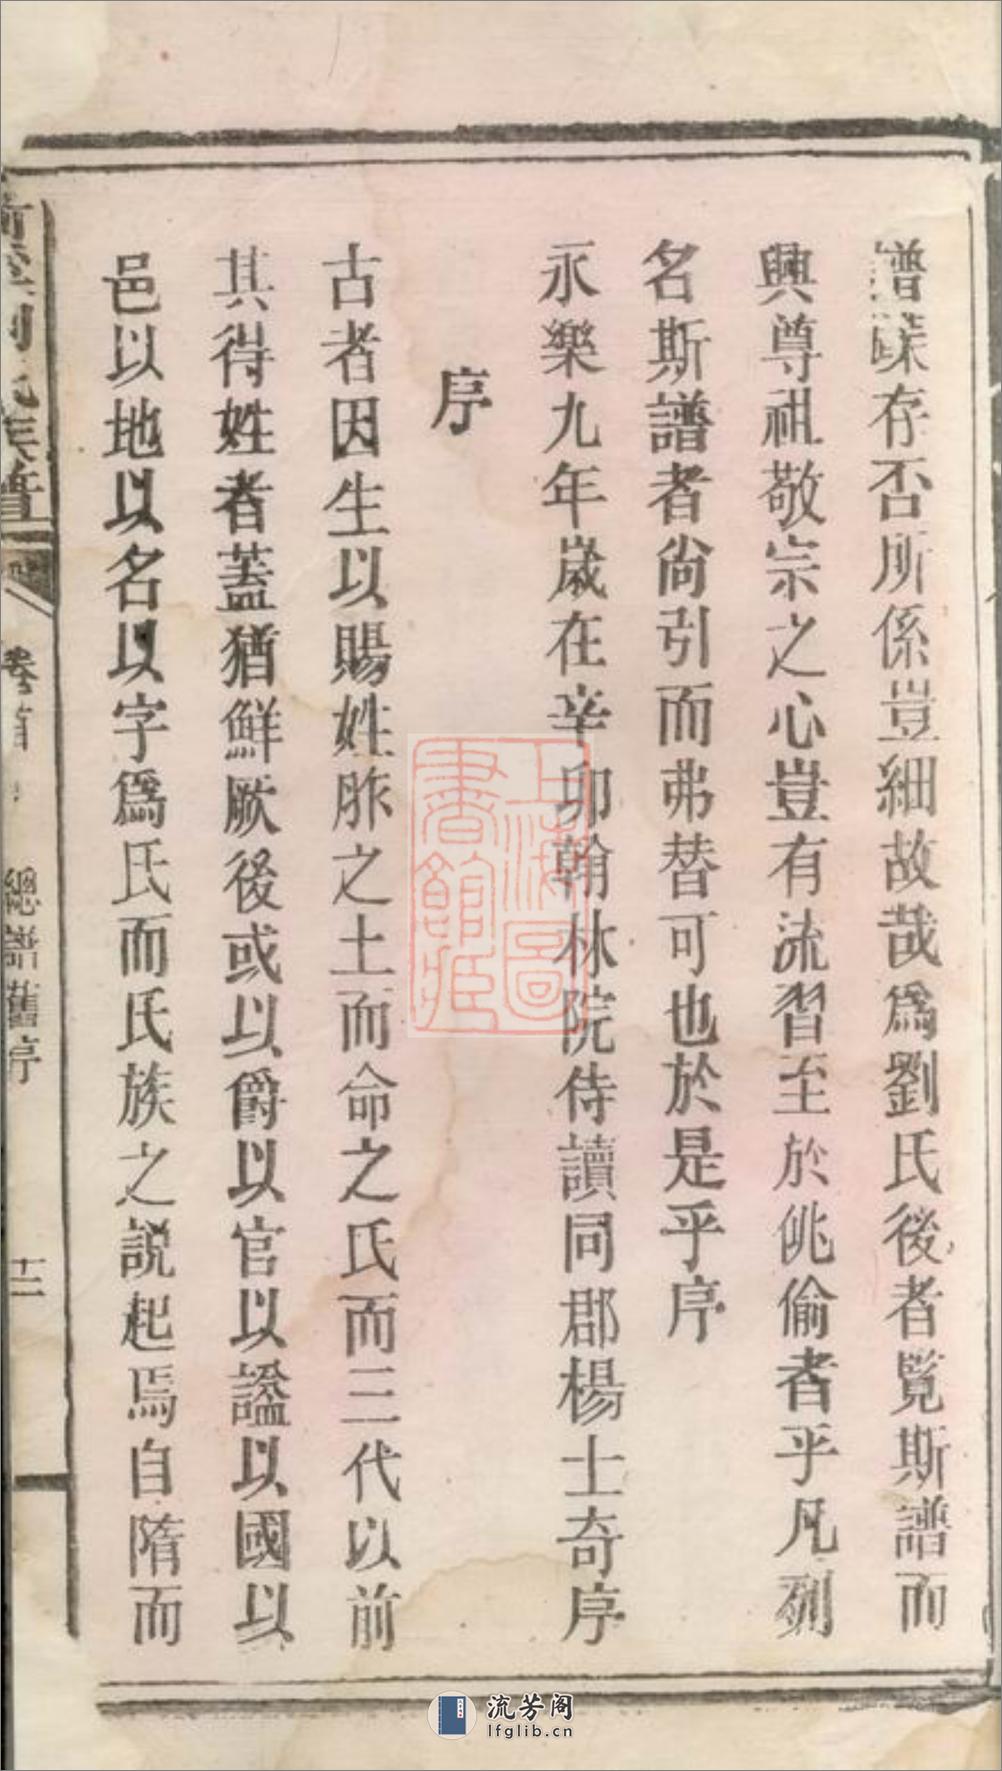 譜諜存否所係豈細故哉爲劉氏後者覧斯譜而
興尊祖敬宗之心豈有流習至於佻偷者乎凡列
名斯譜者尙引而弗替可也於是乎序
永樂九年歲在辛卯翰林院侍讀同郡楊士奇序
序
古者因生以賜姓胙之土而命之氏而三代以前
其得姓者蓋猶鮮厥後或以爵以官以謚以國以
邑以地以名以字爲氏而氏族之説起焉自隋而
劉氏族譜
卷首
總譜舊序
十二
上海圖書館藏
流芳阁
lfglib.cn